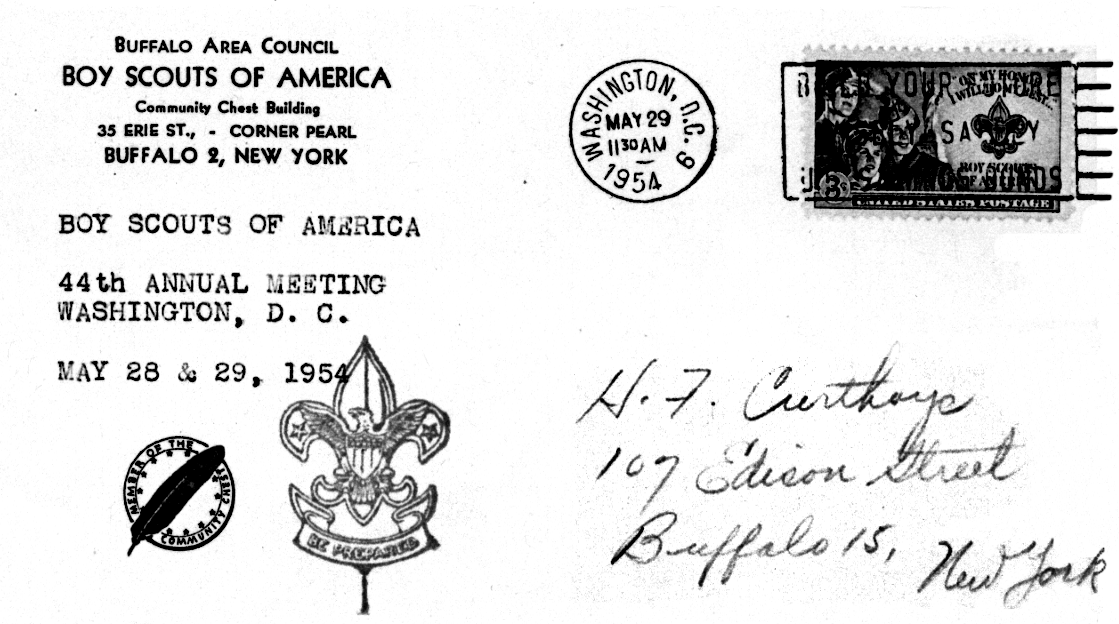 BUFFALO AREA COUNCIL
BOY SCOUTS OF AMERICA
Community Chest Building
35 ERIE ST., - CORNER PEARL
BUFFALO 2, NEW YORK
WASHINGTON, D.C. 9
MAY 29
11 30 AM
1954
ON MY HONOR
I WILL DO MY BEST...
BOY SCOUTS
OF AMERICA
3¢
UNITED STATES POSTAGE
YOUR
SAFETY
BONDS
BOY SCOUTS OF AMERICA
44th ANNUAL MEETING
WASHINGTON, D. C.
MAY 28 & 29, 1954
MEMBER OF THE
COMMUNITY CHEST
BE PREPARED
H. F. Curthoys
107 Edison Street
Buffalo 15, New York